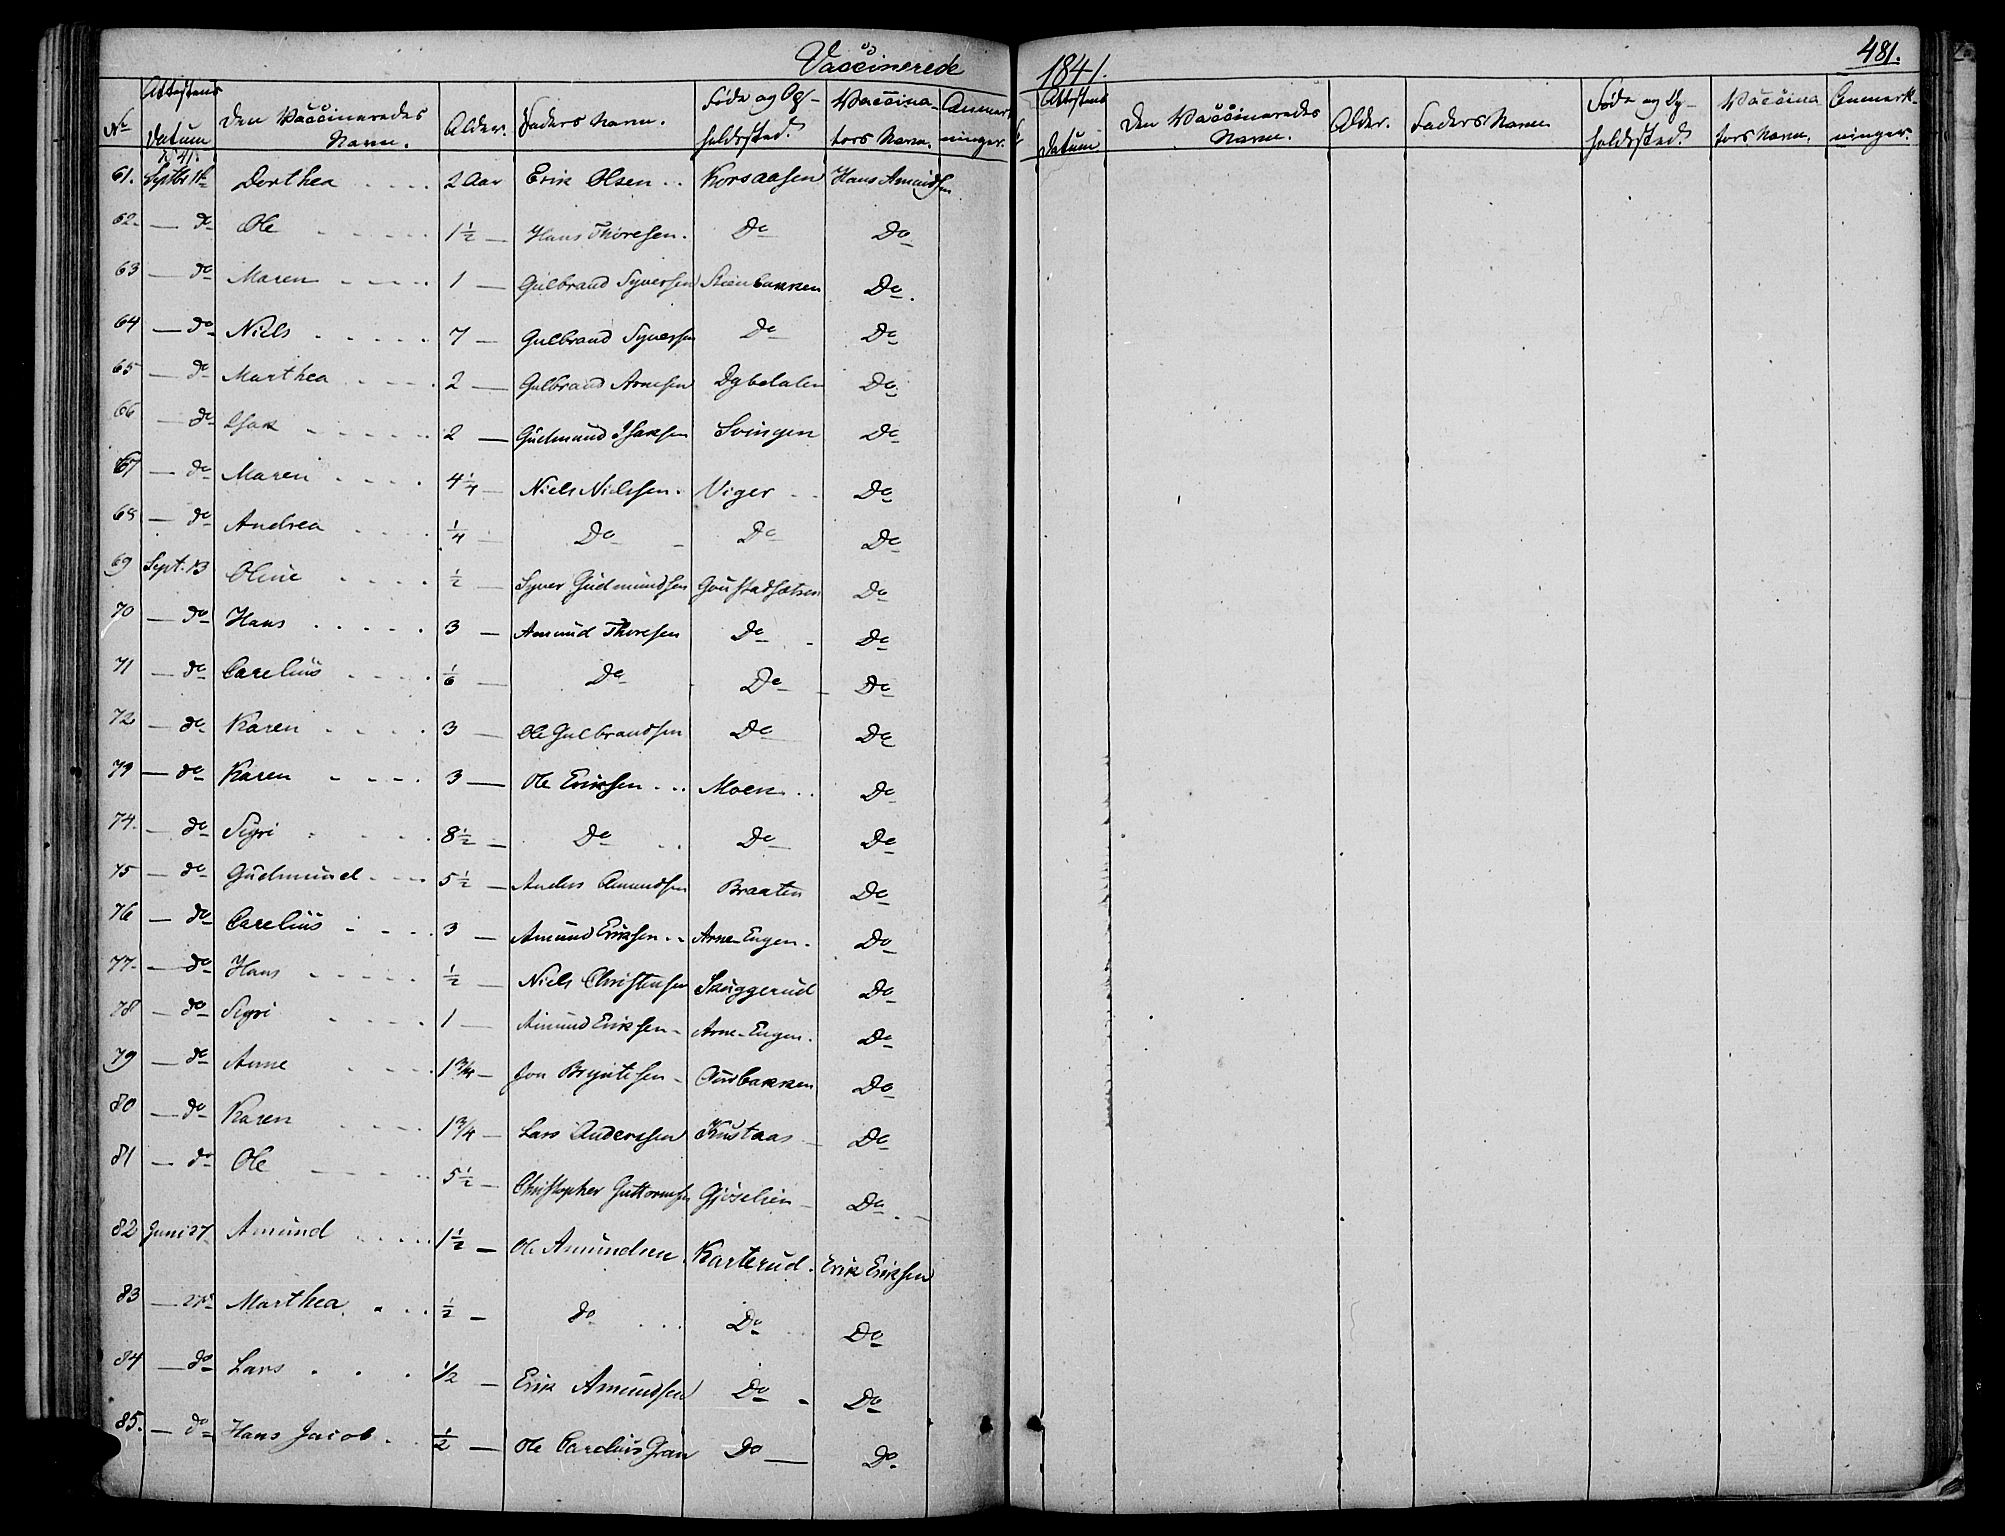 Vaccinerede
1841.
481.
No Attestens Datum Den Vaccineredes Navn. Alder. Faders Navn. Føde og Op- holdssted. Vaccina- tors Navn. Anmærk- ninger.
Attestens Datum Den Vaccineredes Navn. Alder. Faders Navn Føde og Op- holdssted. Vaccina- tors Navn. Anmærk- ninger.
61. Septbr 11te Dorthea 2 Aar Erik Olsen Korsaasen Hans Amundsen
62. — do Ole 1½ — Hans Thoresen. Do Do
63 — do Maren 1 — Gulbrand Syversen Steenbakken Do.
64 — do Niels 7 — Gulbrand Syversen Do Do
65 — do Marthea 2 — Gulbrand Arnesen Dybdalen Do
66 — do Isak 2 — Gudmund Isaksen Svingen Do
67 — do Maren 4¼ — Niels Nielssen. Viger Do
68 — do Andrea ¼ — Do Do Do
69 Sept. 13 Oline ½ — Syver Gudmundsen Goustadsætren Do
70 — do Hans 3 — Amund Thoresen Do Do
71 — do Carelius 1/6 — Do Do Do
72 — do Karen 3 — Ole Gulbrandsen Do Do
73 — do Karen 3 — Ole Eriksen Moen Do
74. — do Sigri 8½ — Do Do Do
75 — do Gudmund 5½ — Anders Amundsen Braaten Do
76 — do Carelius 3 — Amund Eriksen Arne-Engen. Do
77. — do Hans ½ — Niels Christensen Skuggerud Do
78 — do Sigri 1 — Amund Eriksen Arne-Engen. Do
79 — do Anne 1¾ — Jon Bryntesen Do
80 — do Karen 1¾ — Lars Anderssen Knstaas Do
81 — do Ole 5½ — Christopher Guttormsen Gjøselien Do
82 Juni 27 Amund 1½ — Ole Amundsen Karterud. Erik Eriksen
83 — Marthea ½ — do Do Do
84 — do Lars ½ — Erik Amundsen Do Do
85. — do Hans Jacob ½ — Ole Carelius Gran Do Do